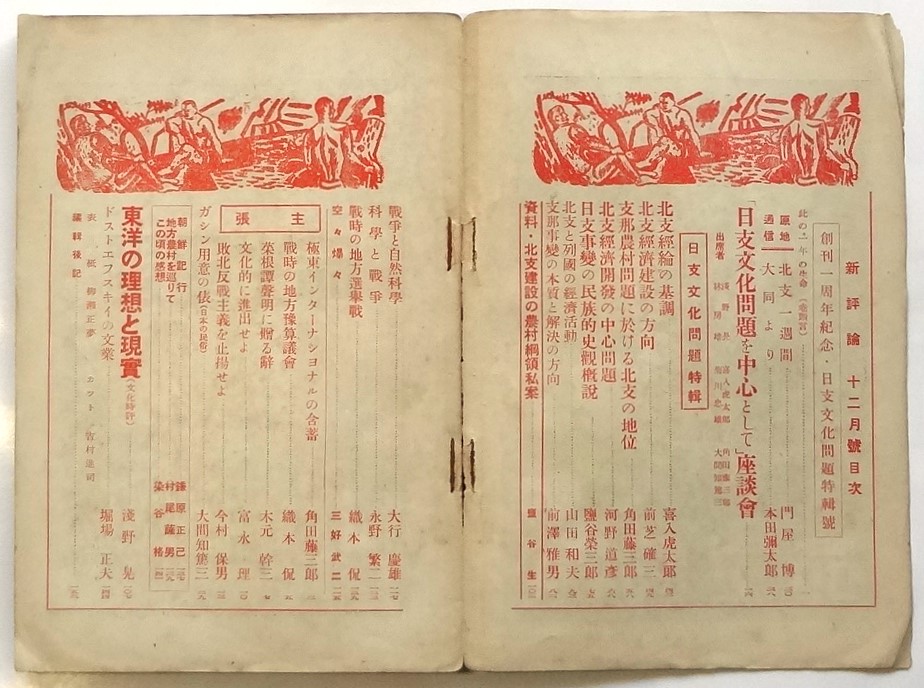 新評論 十二月號目次
創刊一周年紀念・日支文化問題特輯號
此の一年の生命(卷頭言)
原地通信 北支一週間 門屋博
大同より 本田彌太郎
「日支文化問題を中心として」座談會
出席者
日支文化問題特輯
北支經綸の基調 喜入虎太郎
北支經濟建設の方向 前芝確三
支那農村問題に於ける北支の地位 角田藤三郎
北支經濟開發の中心問題 河野道彦
日支事變の民族的史觀概說 鹽谷榮三郎
北支と列國の經濟活動 山田和夫
支那事變の本質と解決の方向 前澤雅男
資料・北支建設の農村綱領私案 鹽谷生
戰爭と自然科學 大行慶雄
科學と戰爭 永野繁二
戰時の地方選舉戰 織本侃
空々爆々 三好武二
主張
極東インターナショナルの含蓄 角田藤三郎
戰時の地方豫算議會 織本侃
菜根譚聲明に贈る辭 木元幹三
文化的に進出せよ 富永理
敗北反戰主義を止揚せよ 今村保男
ガシン用意の俵(日本の民俗) 大間知篤三
朝鮮記行 鎌原正己
地方農村を巡りて 村尾薩男
この頃の感想 染谷格
東洋の理想と現實(文化時評) 淺野晃
ドストエフスキイの文業 堀場正夫
表紙 柳瀬正夢 カット
編輯後記